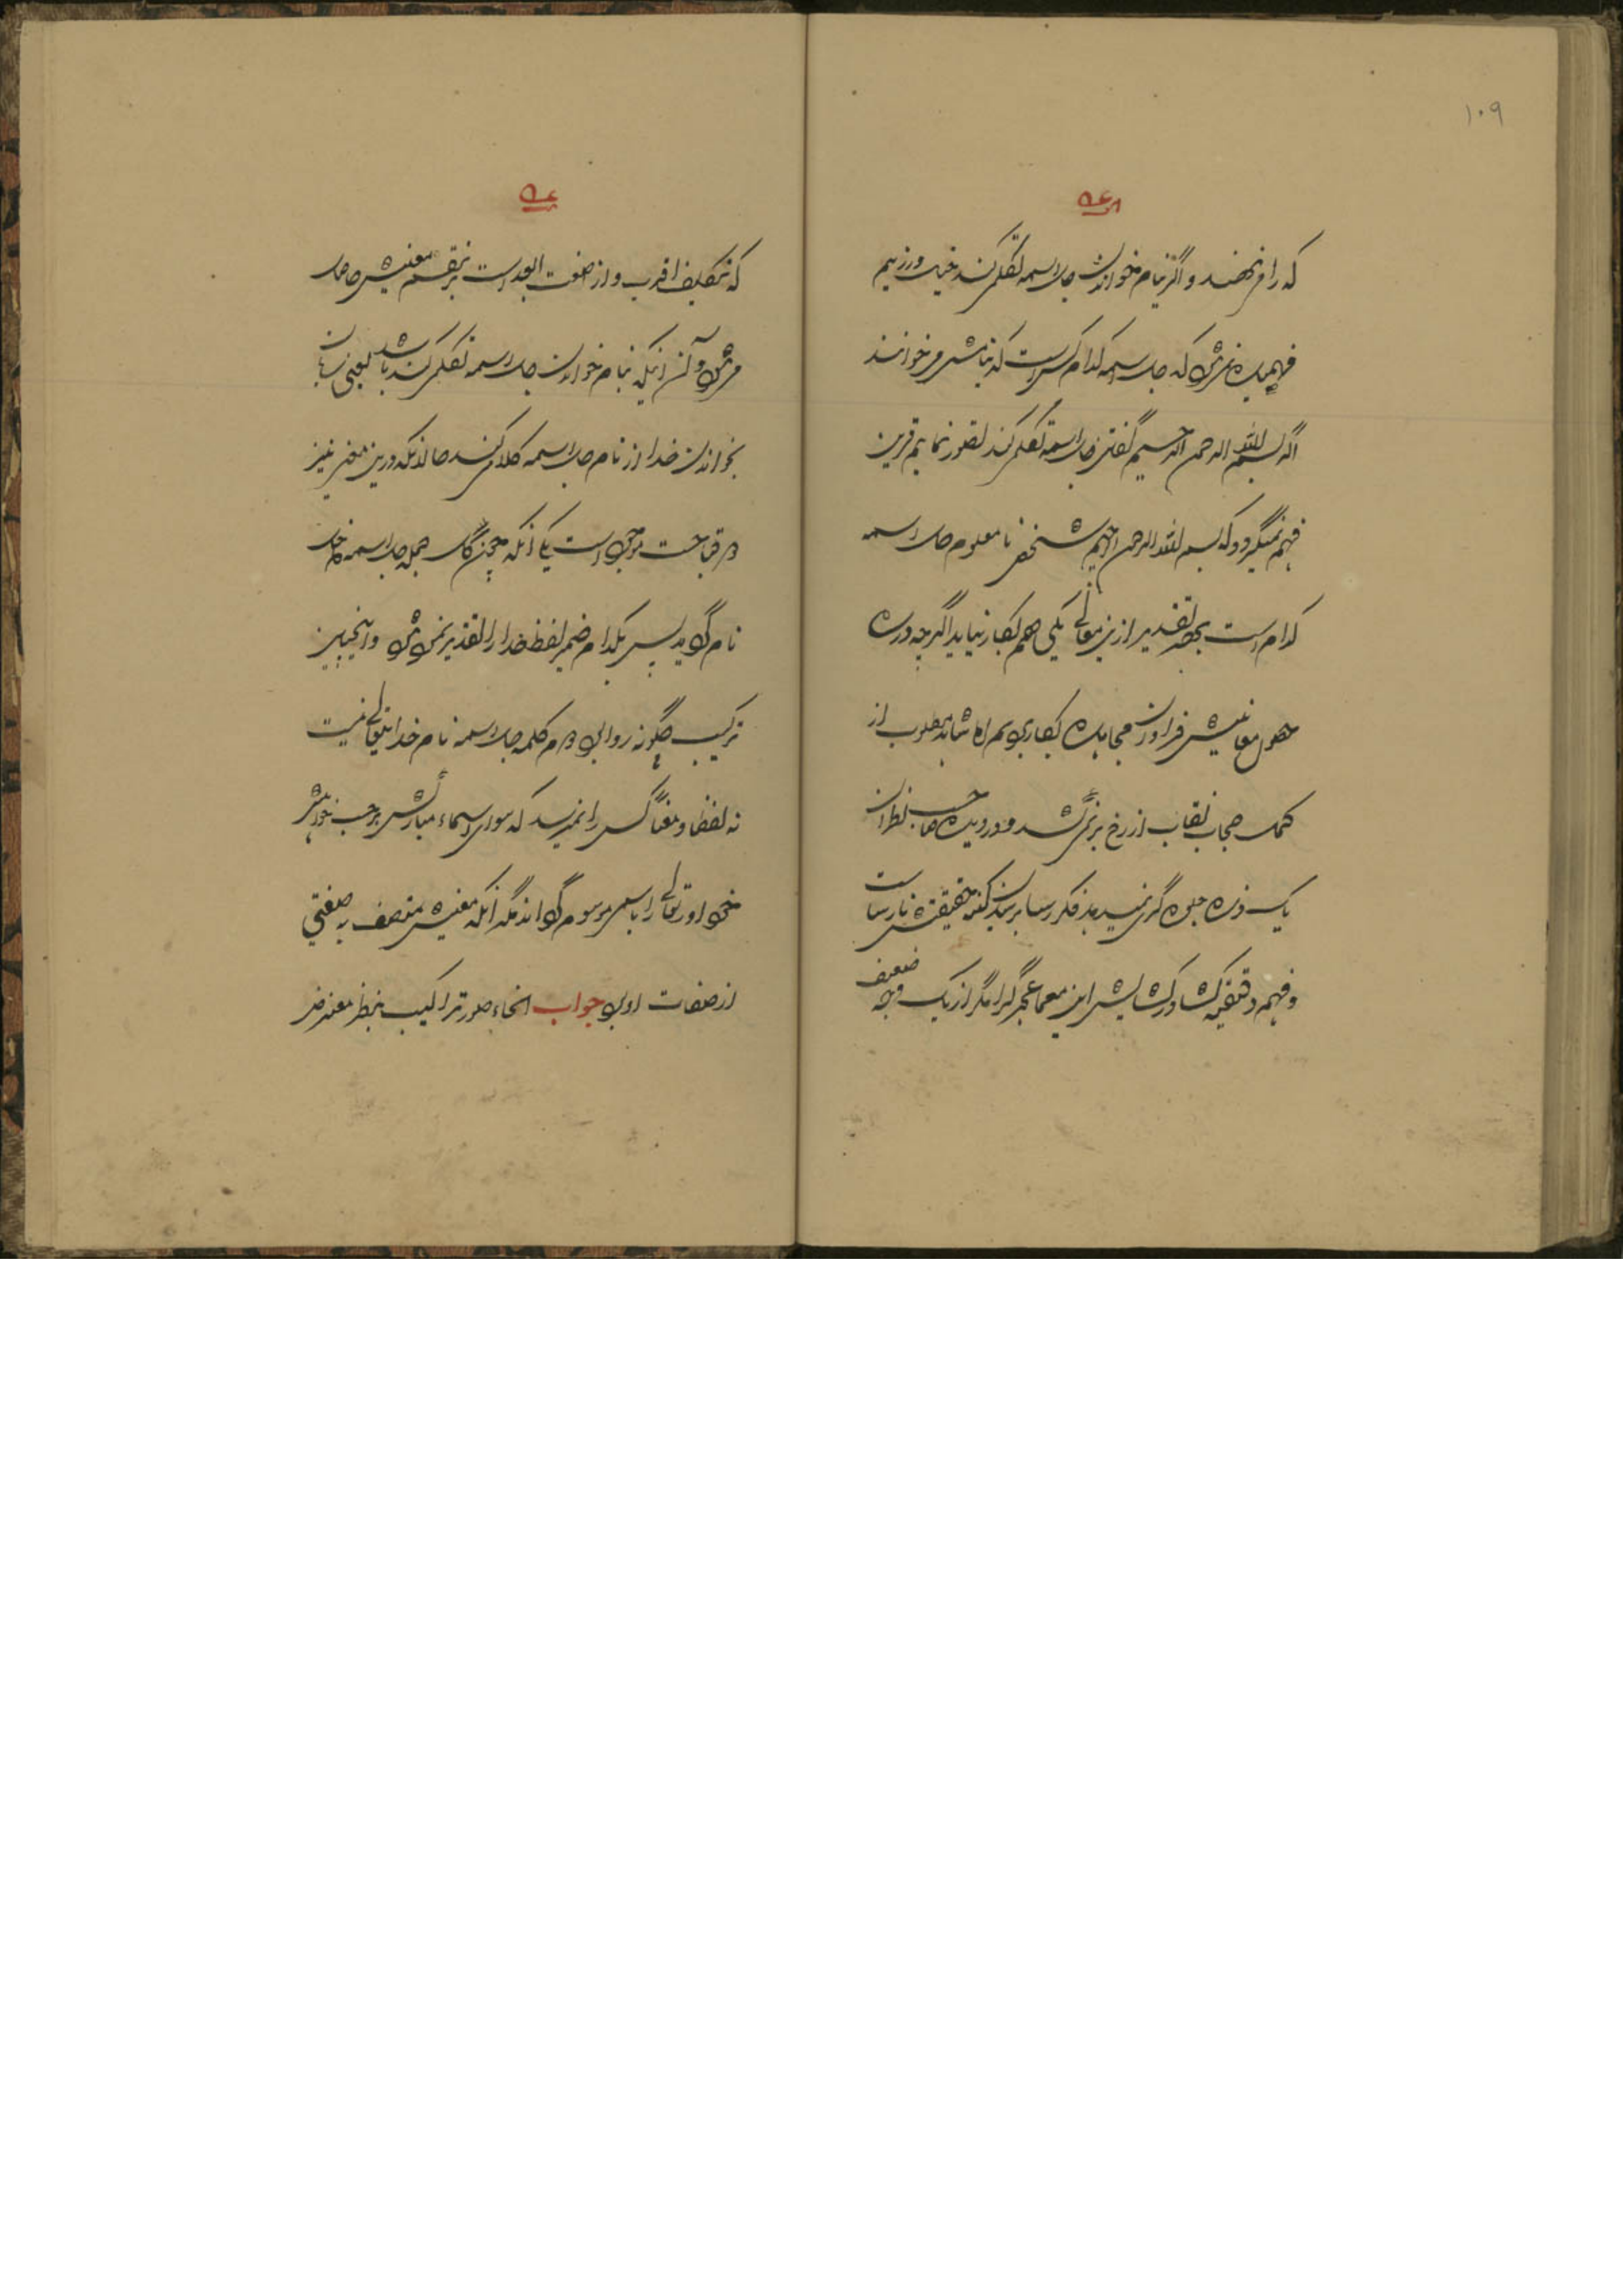 ۱۰۹
که را می نهند و اگر بنام خواندن جل اسمه تکلم کند خیال ورزیم
فهمیده نمیشود که جل اسمه کدام کس است که بنامش میخوانند
اگر بسم الله الرحمن الرحیم گفتن جل اسمه تکلم کند تصور نمایم قرین
فهم نمیگردد که بسم الله الرحمن الرحیم شخص نامعلوم جل اسمه
کدام است بهر تقدیر ازین معانی یکی هم بکار نیاید اگرچه درره
حصول معانیش فراوان مجاهده بکار بردم اما شاهد مطلوب از
حجاب نقاب از رخ بر نکشد و در دیده صاحب نظران
یک ذره جلوه گر نمیسد فکر رسا برسیدن کنه حقیقتش نارساست
و فهم دقیقه کشا در کشایش این معما عجز گرا مگر از یک وجه ضعیف
که بتکلیف اقرب و از صنعت ابعد است بر تقسیم معنیش حاصل
میشود و آن اینکه بنام خواندن جل اسمه تکلم کند باشد یعنی زبان
بخواندن خدا از نام جل اسمه کلام کند حالانکه درین معنی نیز
دو قباحت موجود است یکی آنکه چون گاه جمله جل اسمه کامل
نام گوید پس بکدام ضمیر لفظ خدا را تقدیر نمی شود و اینچنین
ترکیب چگونه روا بود دوم کلمه جل اسمه نام خدایتعالی نیست
نه لفظا و معنا کسی را نمیرسد که سوای اسماء مبارکش برحسب خواهش
خود او تعالی را باسمی موسوم گرداند مگر آنکه معنیش متصف به صفتی
از صفات او بود جواب انحاء صور تراکیب بنظر معترض